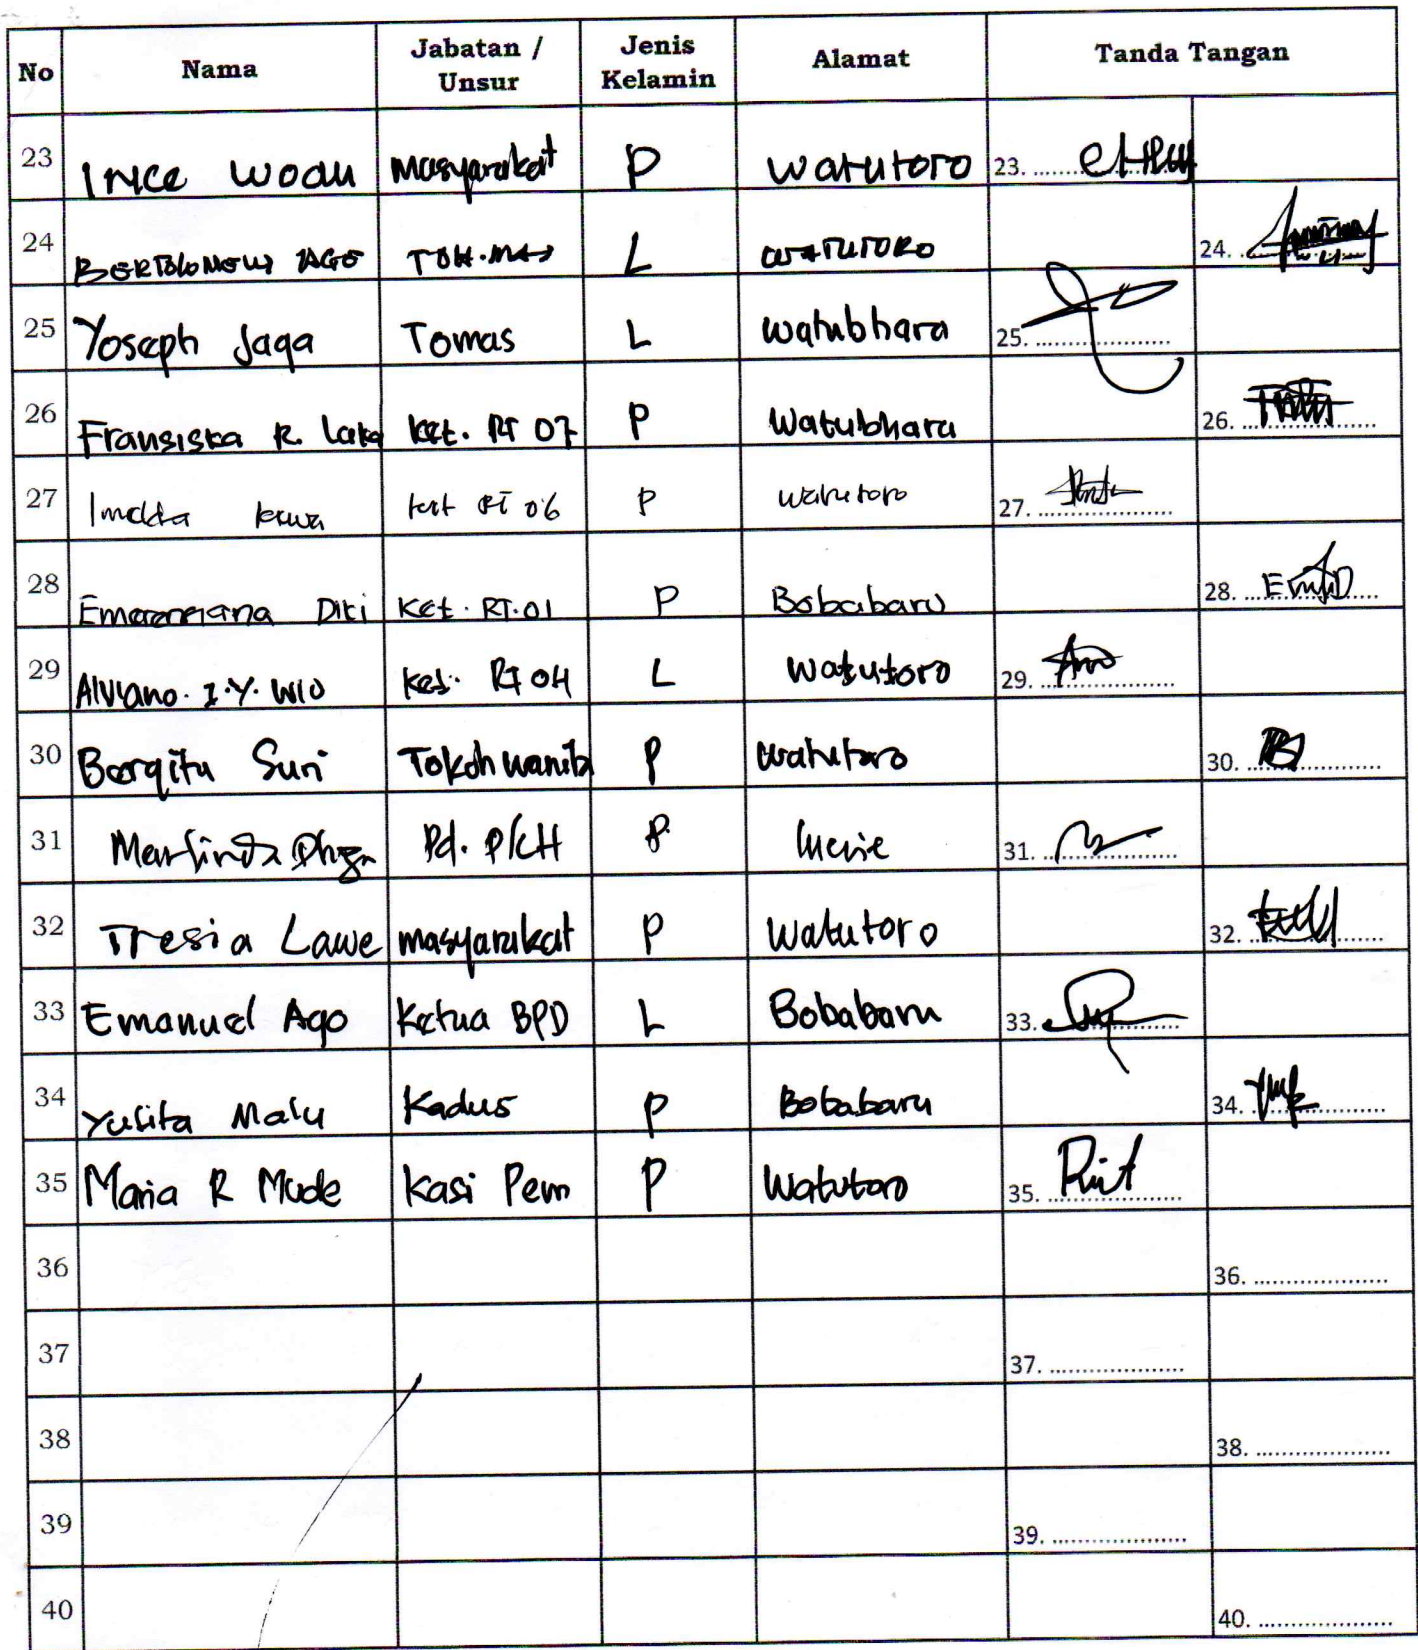 No Nama Jabatan / Unsur Jenis Kelamin Alamat Tanda Tangan
23 Ince Wodu Masyarakat P Watutoro 23.
24 BERTOLOMEUS JAGO TOH.MAS L WATUTORO 24.
25 Yoseph Jaga Tomas L Watubhara 25.
26 Fransiska R. Laka Ket. RT 07 P Watubhara 26.
27 Imelda P Watutoro 27.
28 Diti Ket. RT.01 P Bobabaru 28.
29 Alviano. I.Y. Wio Ket. RT 04 L Watutoro 29.
30 Suri Tokoh Wanita P Watutoro 30.
31 Pd. PKH P 31.
32 Tresia Lawe masyarakat P Watutoro 32.
33 Emanuel Ago Ketua BPD L Bobabaru 33.
34 Yulita Malu Kadus P Bobabaru 34.
35 Maria R Mude Kasi Pem P Watutoro 35.
36 36.
37 37.
38 38.
39 39.
40 40.